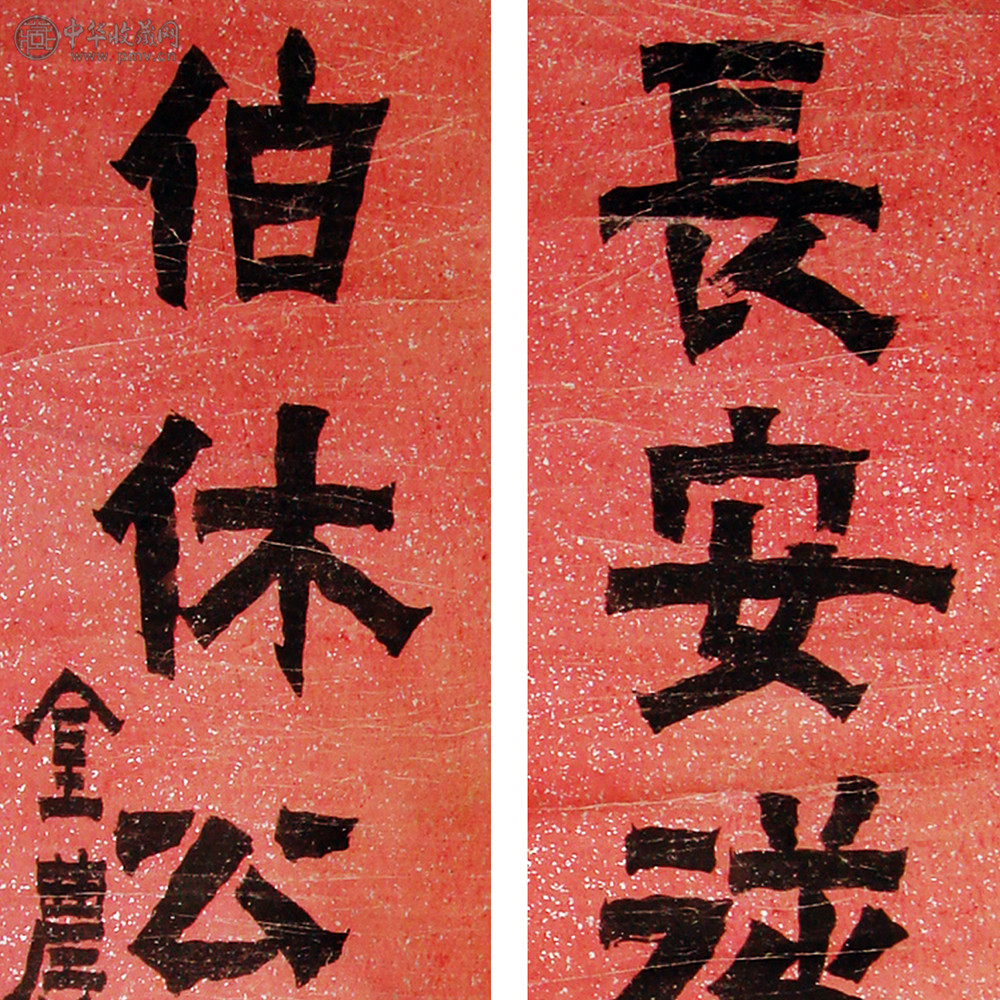 長安
伯休公
金農
中华收藏网